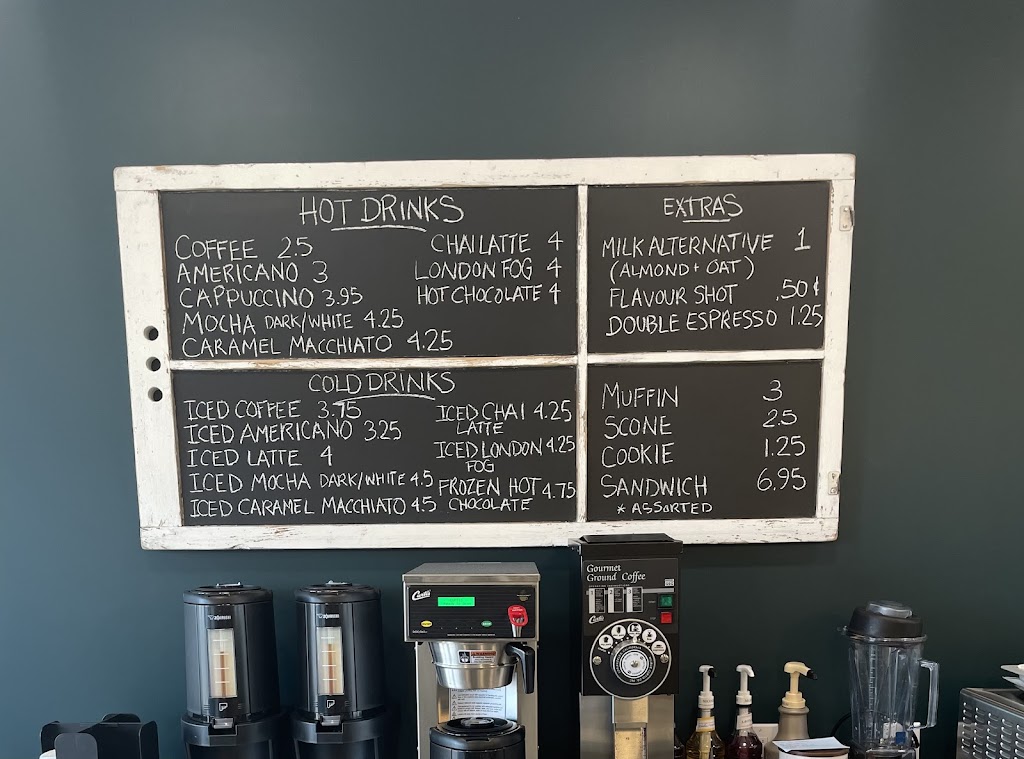 HOT DRINKS
COFFEE 2.5
AMERICANO 3
CAPPUCCINO 3.95
MOCHA DARK/WHITE 4.25
CARAMEL MACCHIATO 4.25
CHAI LATTE 4
LONDON FOG 4
HOT CHOCOLATE 4
EXTRAS
MILK ALTERNATIVE 1
(ALMOND + OAT)
FLAVOUR SHOT .50¢
DOUBLE ESPRESSO 1.25
COLD DRINKS
ICED COFFEE 3.75
ICED AMERICANO 3.25
ICED LATTE 4
ICED MOCHA DARK/WHITE 4.5
ICED CARAMEL MACCHIATO 4.5
ICED CHAI 4.25
LATTE
ICED LONDON 4.25
FOG
FROZEN HOT 4.75
CHOCOLATE
MUFFIN 3
SCONE 2.5
COOKIE 1.25
SANDWICH 6.95
* ASSORTED
Gourmet
Ground Coffee
Curtis
Curtis
ZOJIRUSHI